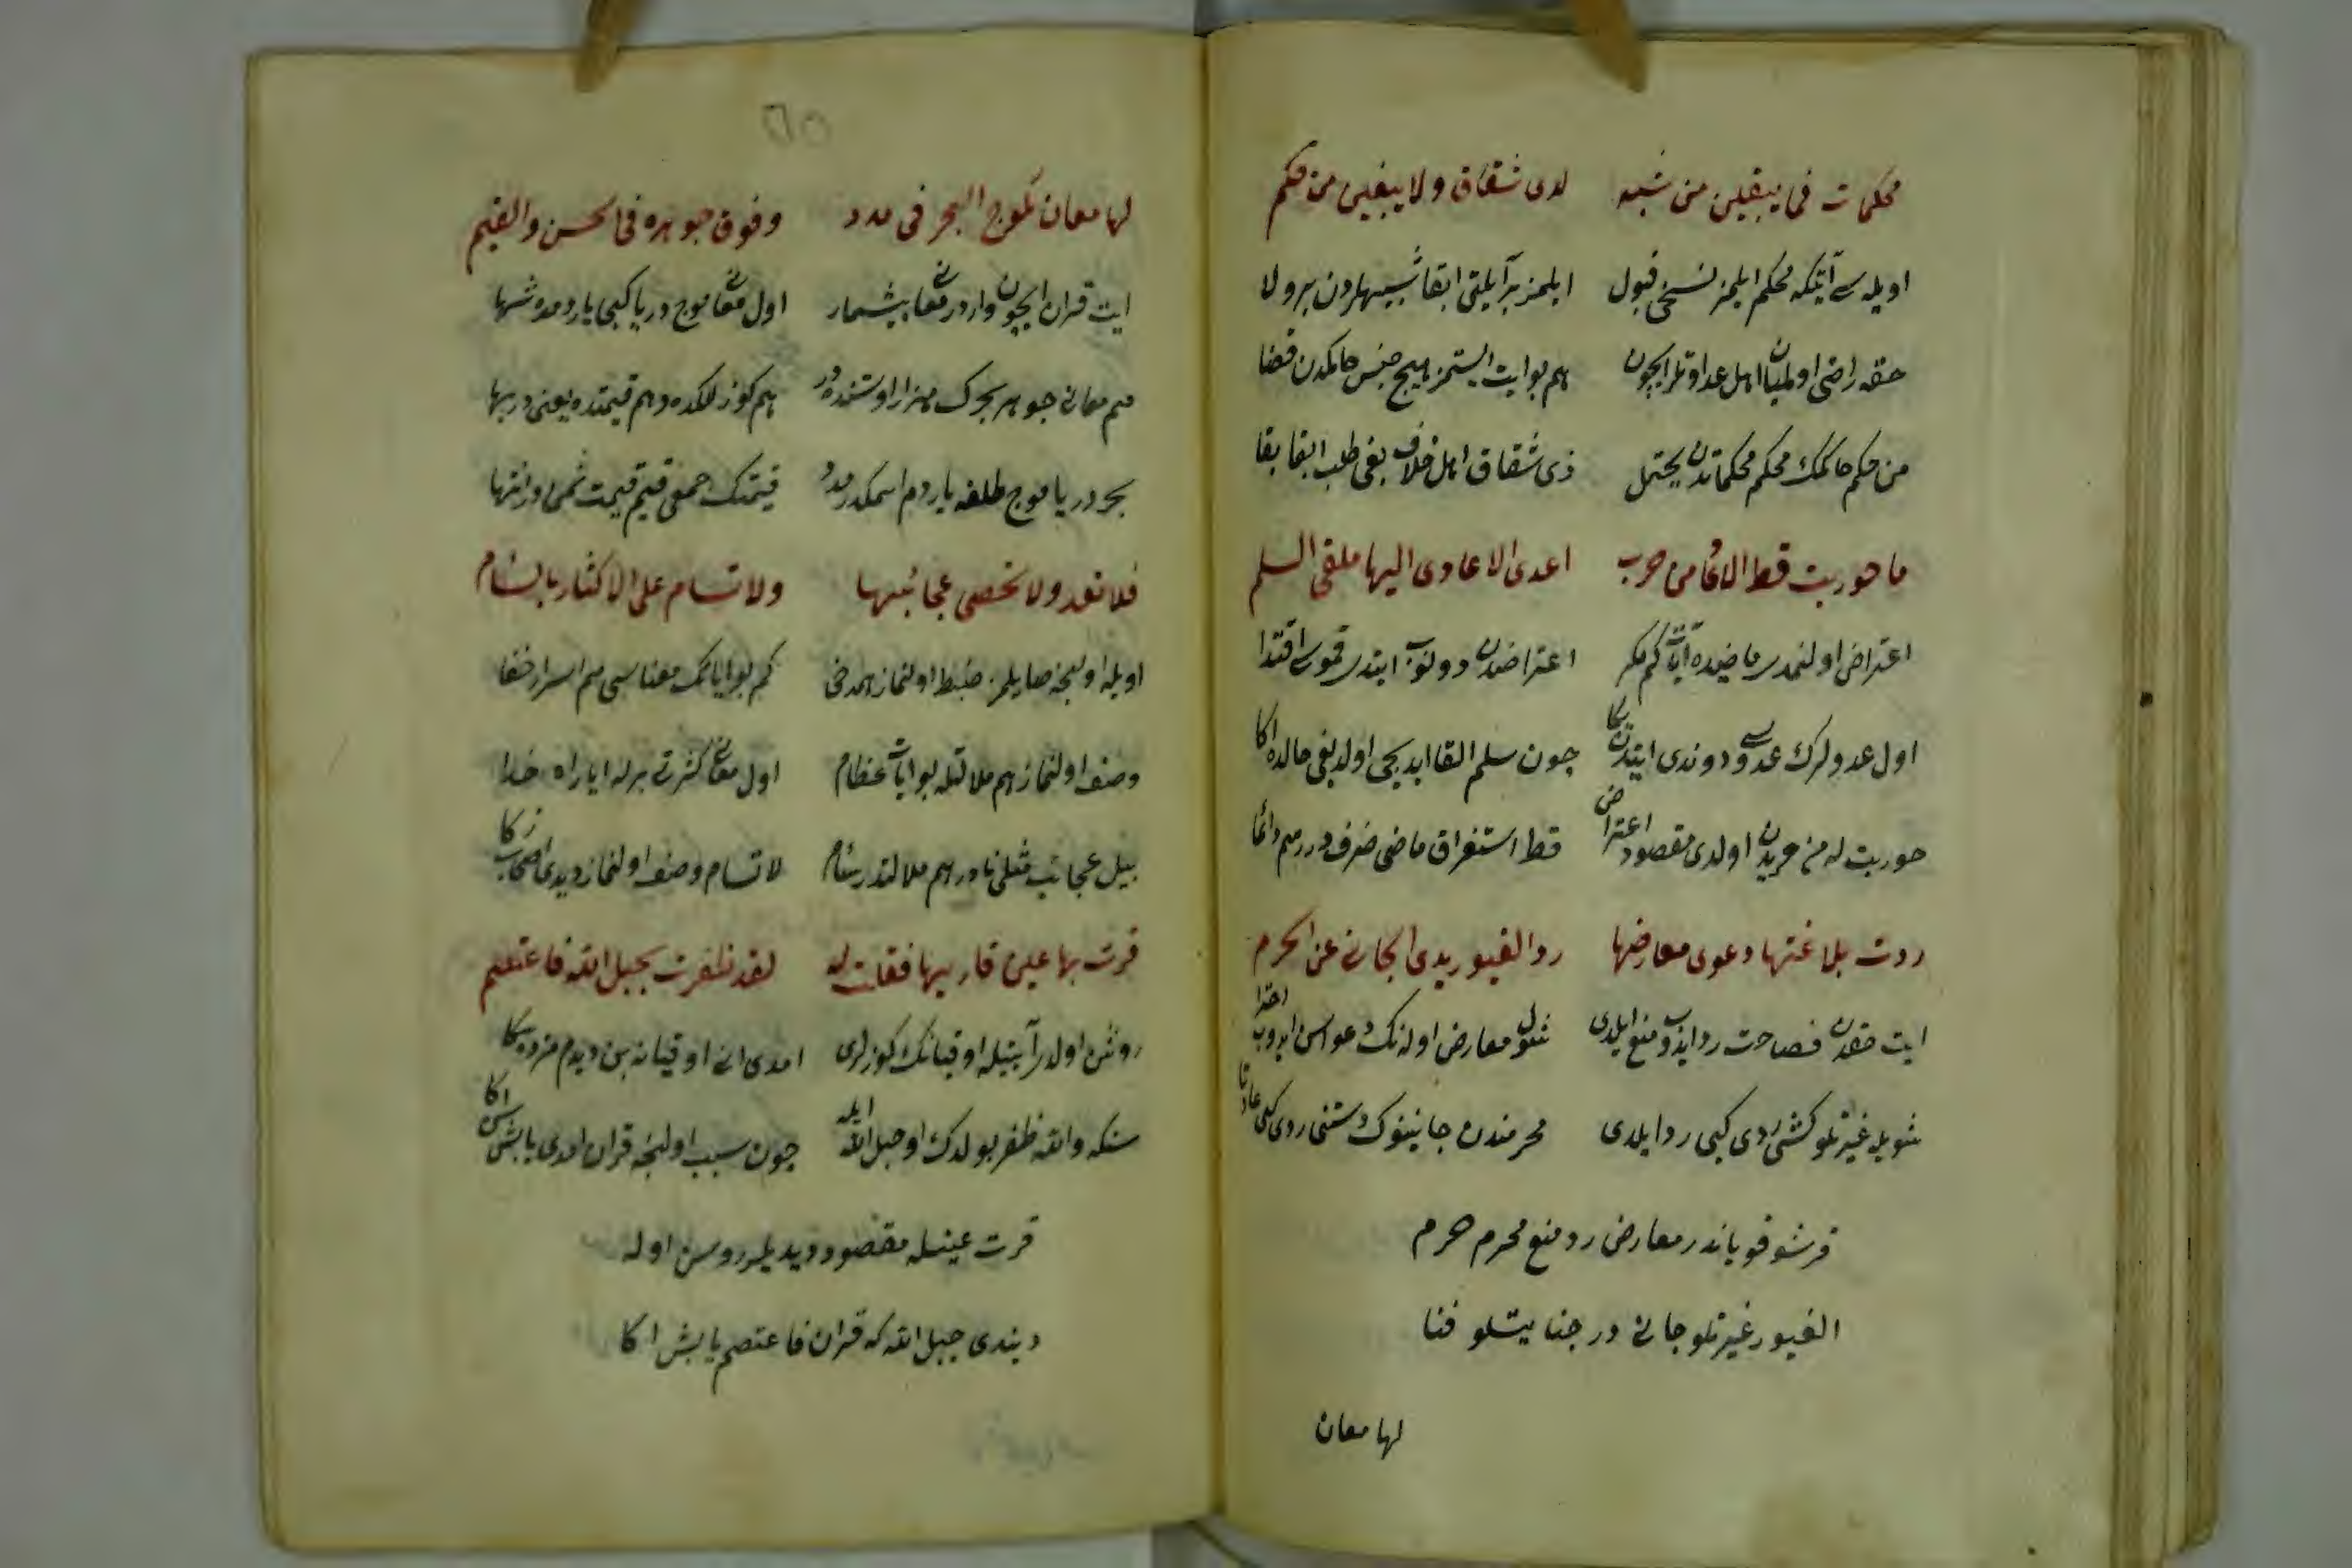 محكمات فما يبقين من شبه لذى شقاق ولا يبغين من حكم
اويله آيتكه محكم ايلمز نسخى قبول ايلمز بر آيلتى ابقا شبيهلردن برولا
حقه راضى اولميان اهل عداوتلر ايچون هم بو ايت ايستمز هيچ جنس حاكمدن قضا
من حكم حاكمك محكم محكماتدن يحتمل ذى شقاق اهل خلاف بغى طلب ابقا بقا
ما حوربت قط الا عاد من حرب اعدى الاعادى اليها ملقى السلم
اعتراض اولنمدى ماضيده آيات كم مكر اعتراضدن دونوب ايتدى قمو اقتدا
اول عدولرك عدوسى دوندى ايتدن چون سلم القا ايديجى اولديغى حالده اكا
حوربت له من حربدن اولدى مقصود اعتراض قط استغراق ماضى ظرف در هم دائما
ردت بلاغتها دعوى معارضها رد الغيور يدى الجانى عن الحرم
ايت حقدن فصاحت رد ايدوب منع ايلدى شول معارض اولانك دعواسن ايدوب
شويله غيرتلو كشى ردى كبى رد ايلدى محرمندن جانينوك دستنى ردى كبى
قرشو قوياندر معارض رد منع محرم حرم
الغيور غيرتلو جانى در جنايتلو فنا
لها معان
٦٥
لها معان كموج البحر فى مدد وفوق جوهره فى الحسن والقيم
ايت قران ايچون واردر معانى بيشمار اول معانى موج دريا كبى ياردمده شها
هم معانى جوهر بحرك هزار اوستنده در هم كوزللكده وهم قيمتده يعنى در بها
بحر دريا موج طلغه ياردم اسمكدر مدد قيمتك جمعى قيم قيمت ثمن در انتها
فلا تعد ولا تحصى عجائبها ولا تسام على الاكثار بالسام
اويله اولنجه صايلمز ضبط اولنماز همدخى كم بو اياتك معناسى هم اسرار خفا
وصف اولنماز هم ملالتله بو ايات عظام اول معانى كثرت برله ايا راه خدا
بيل عجائب مثلى نادر هم ملالتدر سام لا تسام وصف اولنماز ديدى اصحاب ذكا
قرت بها عين قاريها فقلت له لقد ظفرت بحبل الله فاعتصم
روشن اولدر آيتيله اوقيانك كوزلرى امدى انى اوقيانه بن ديدم مژده سكا
سنكه والله ظفر بولدك او حبل الله ايله چون سبب اولنجه قران امدى يابش سن اكا
قرت عينله مقصود ديديلر روسن اوله
ديندى حبل الله كه قران فاعتصم يابش اكا